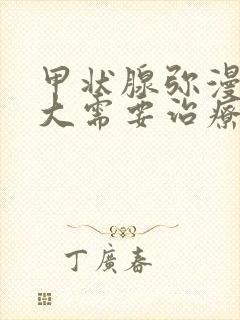 甲状腺弥漫
大需要治疗
丁廣春